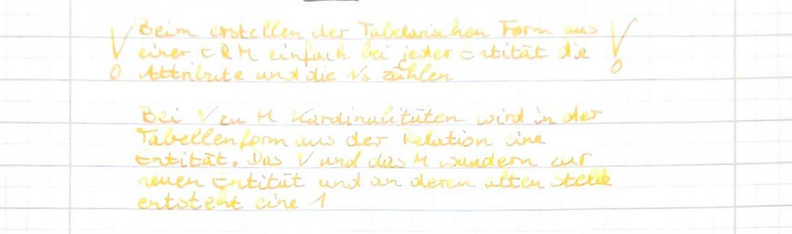 Beim erstellen der Tabelarischen Form aus
einer ERM einfach bei jeder Entität die
Attribute und die Ns zählen
Bei N zu M Kardinalitäten wird in der
Tabellenform aus der Relation eine
Entität. Das N und das M wandern zur
neuen Entität und an deren alten Stelle
entsteht eine 1